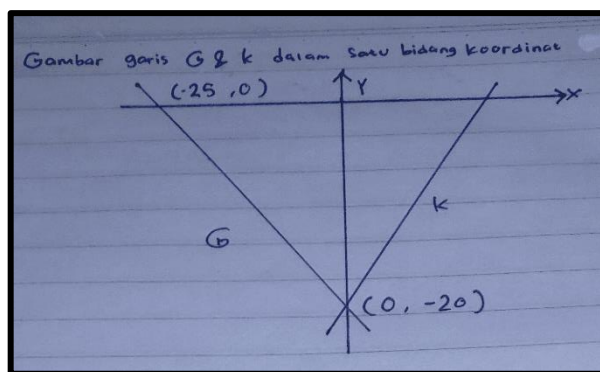 Gambar garis G & k dalam satu bidang koordinat
(-25, 0)
Y
X
G
K
(0, -20)